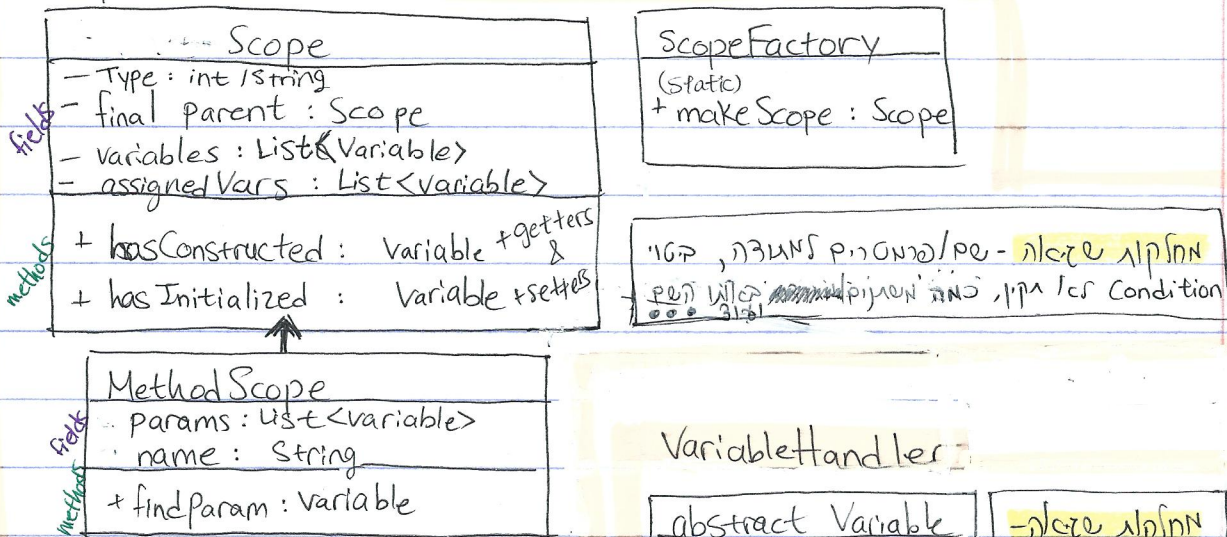 Scope
- Type : int / String
- final parent : Scope
- variables : List<Variable>
- assignedVars : List<variable>
fields
+ hasConstructed : Variable
+ hasInitialized : Variable
+getters
&
+setters
methods
MethodScope
params : List<variable>
name : String
fields
+ findParam : Variable
methods
ScopeFactory
(static)
+ makeScope : Scope
מחלקות שגיאה - שם/פרמטרים למתודה, ביטוי
Condition לא תקין, כמה משתנים באותו השם
ועוד ...
VariableHandler
abstract Variable
מחלקות שגיאה-